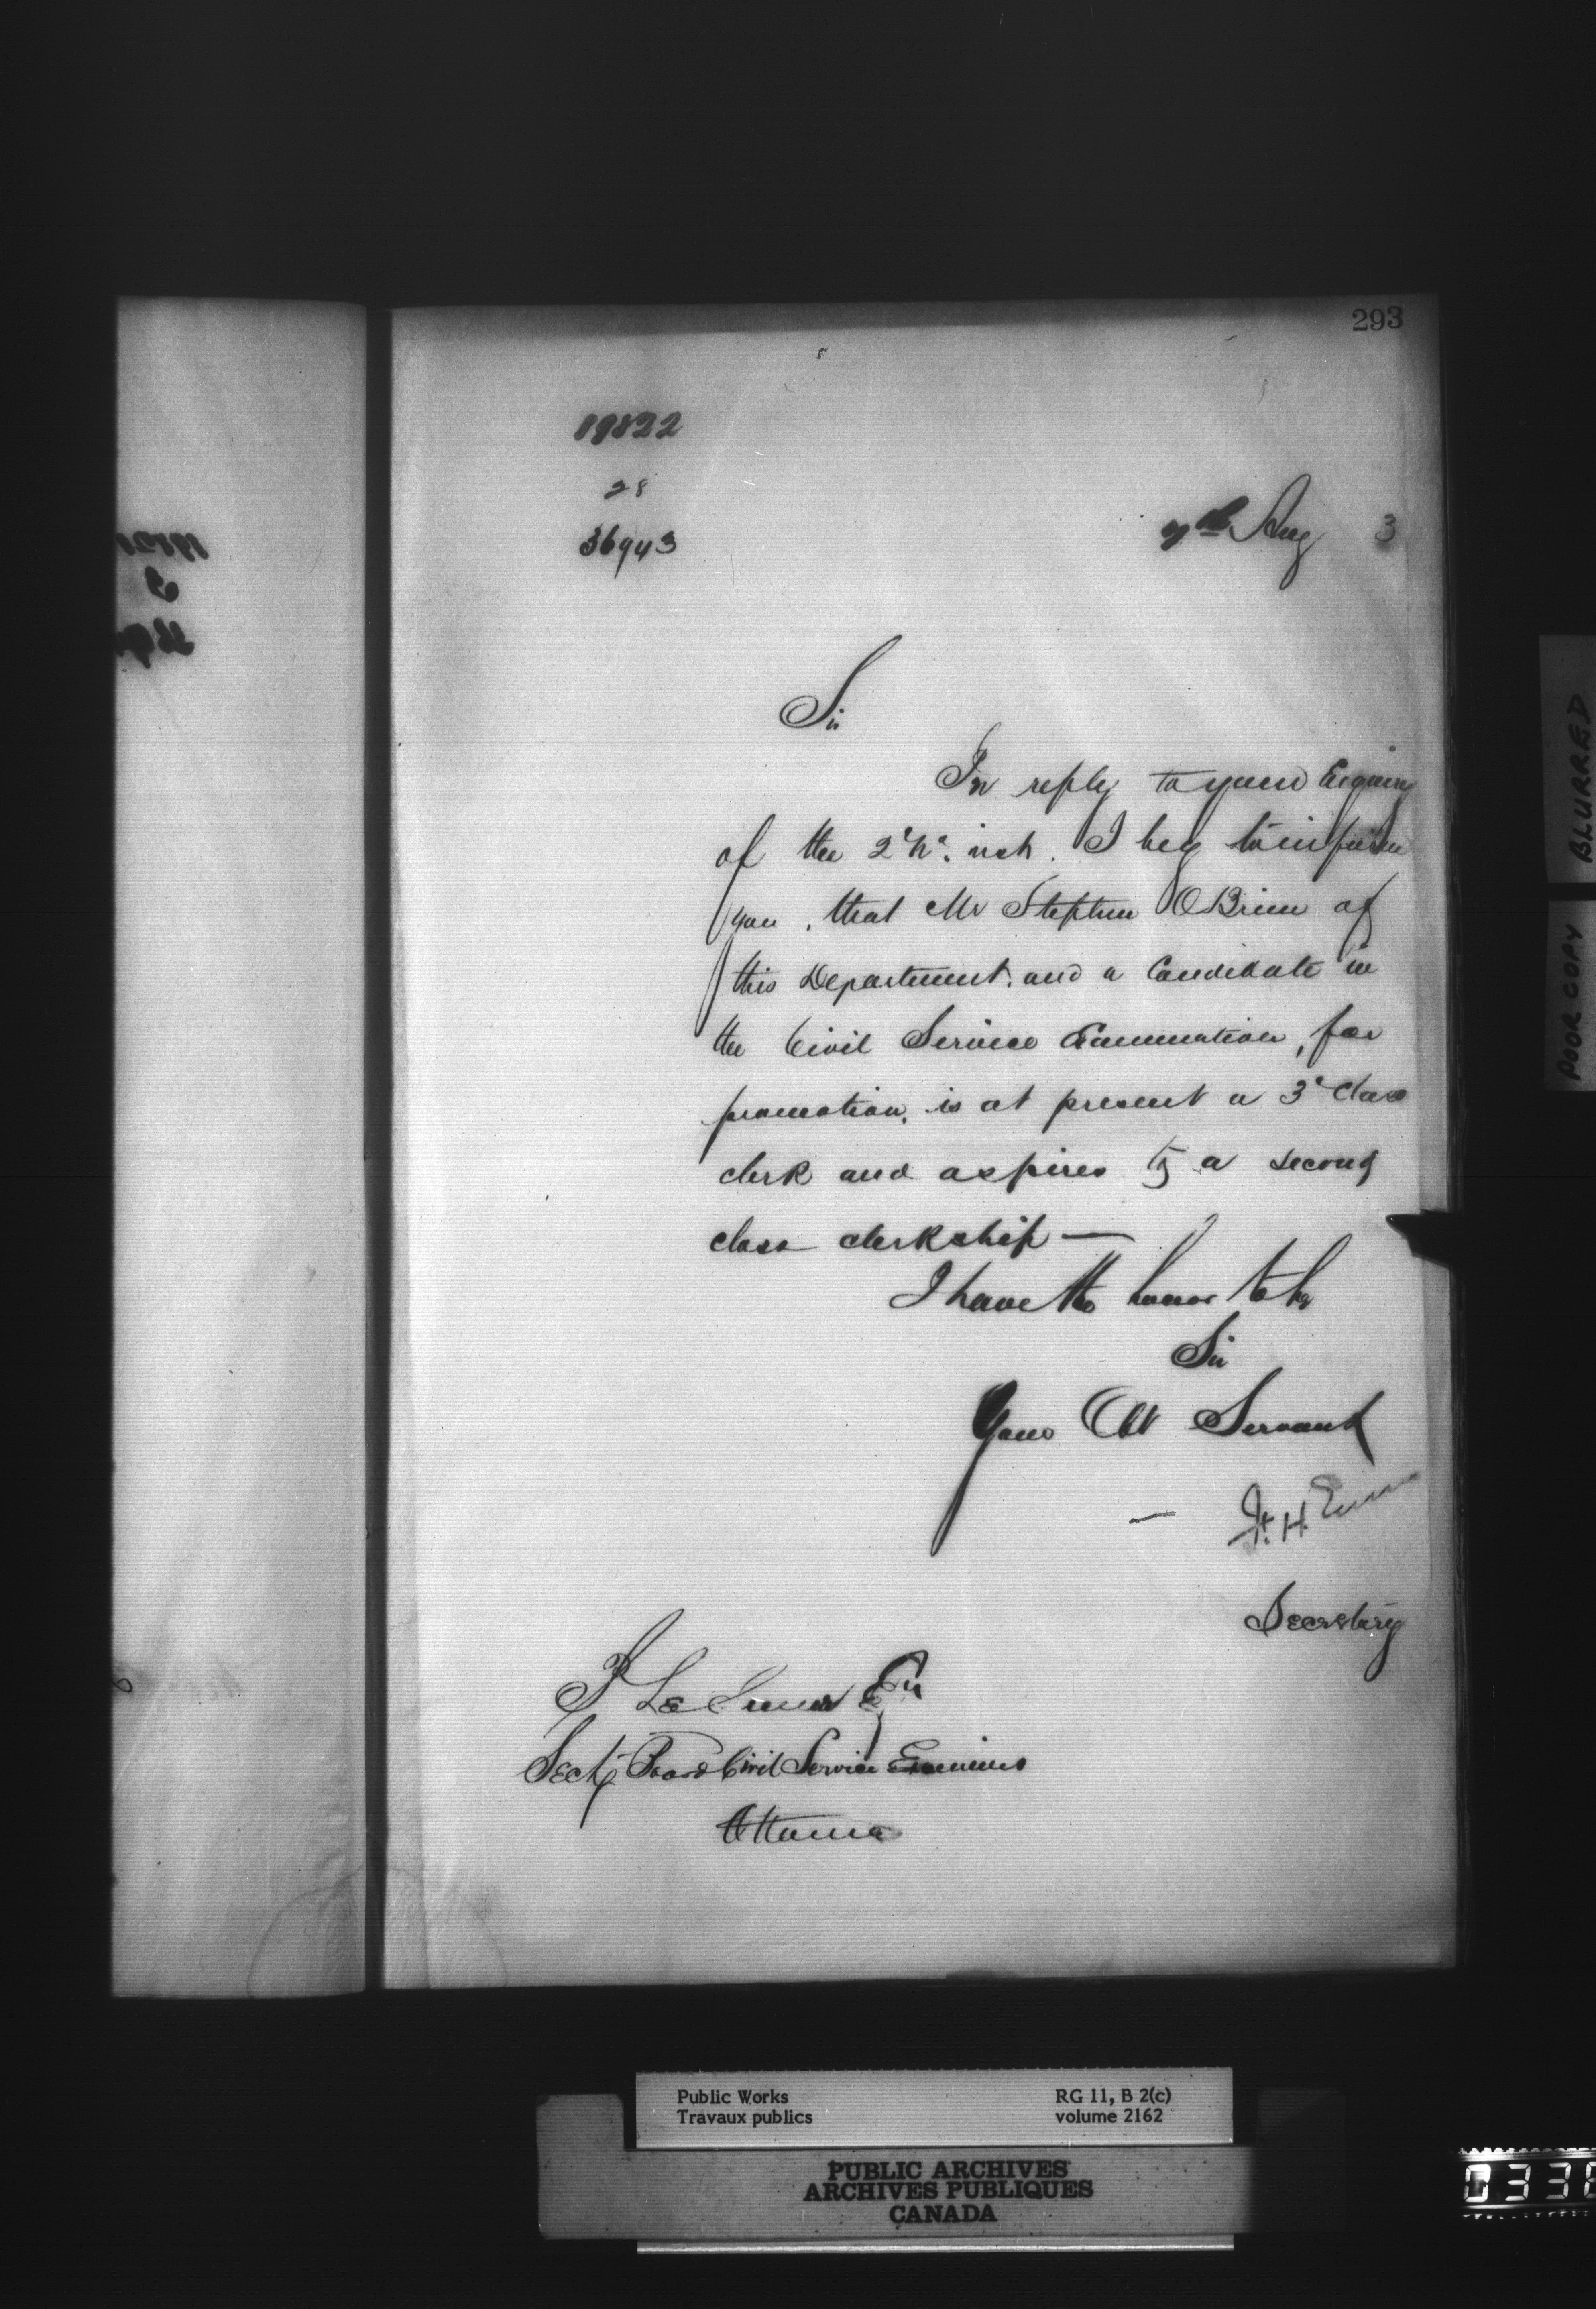 293
19822
28
36943
7th Aug 3
Sir
In reply to your Enquiry
of the 2nd inst. I beg to inform
you, that Mr Stephen O'Brien of
this Department, and a Candidate in
the Civil Service Examination, for
promotion, is at present a 3d Class
clerk and aspires to a second
class clerkship —
I have the honor to be
Sir
Your Obt Servant
F. H. Ennis
Secretary
P Le Sueur Esq
Secty Board Civil Service Examiners
Ottawa
BLURRED
POOR COPY
Public Works
Travaux publics
RG 11, B 2(c)
volume 2162
PUBLIC ARCHIVES
ARCHIVES PUBLIQUES
CANADA